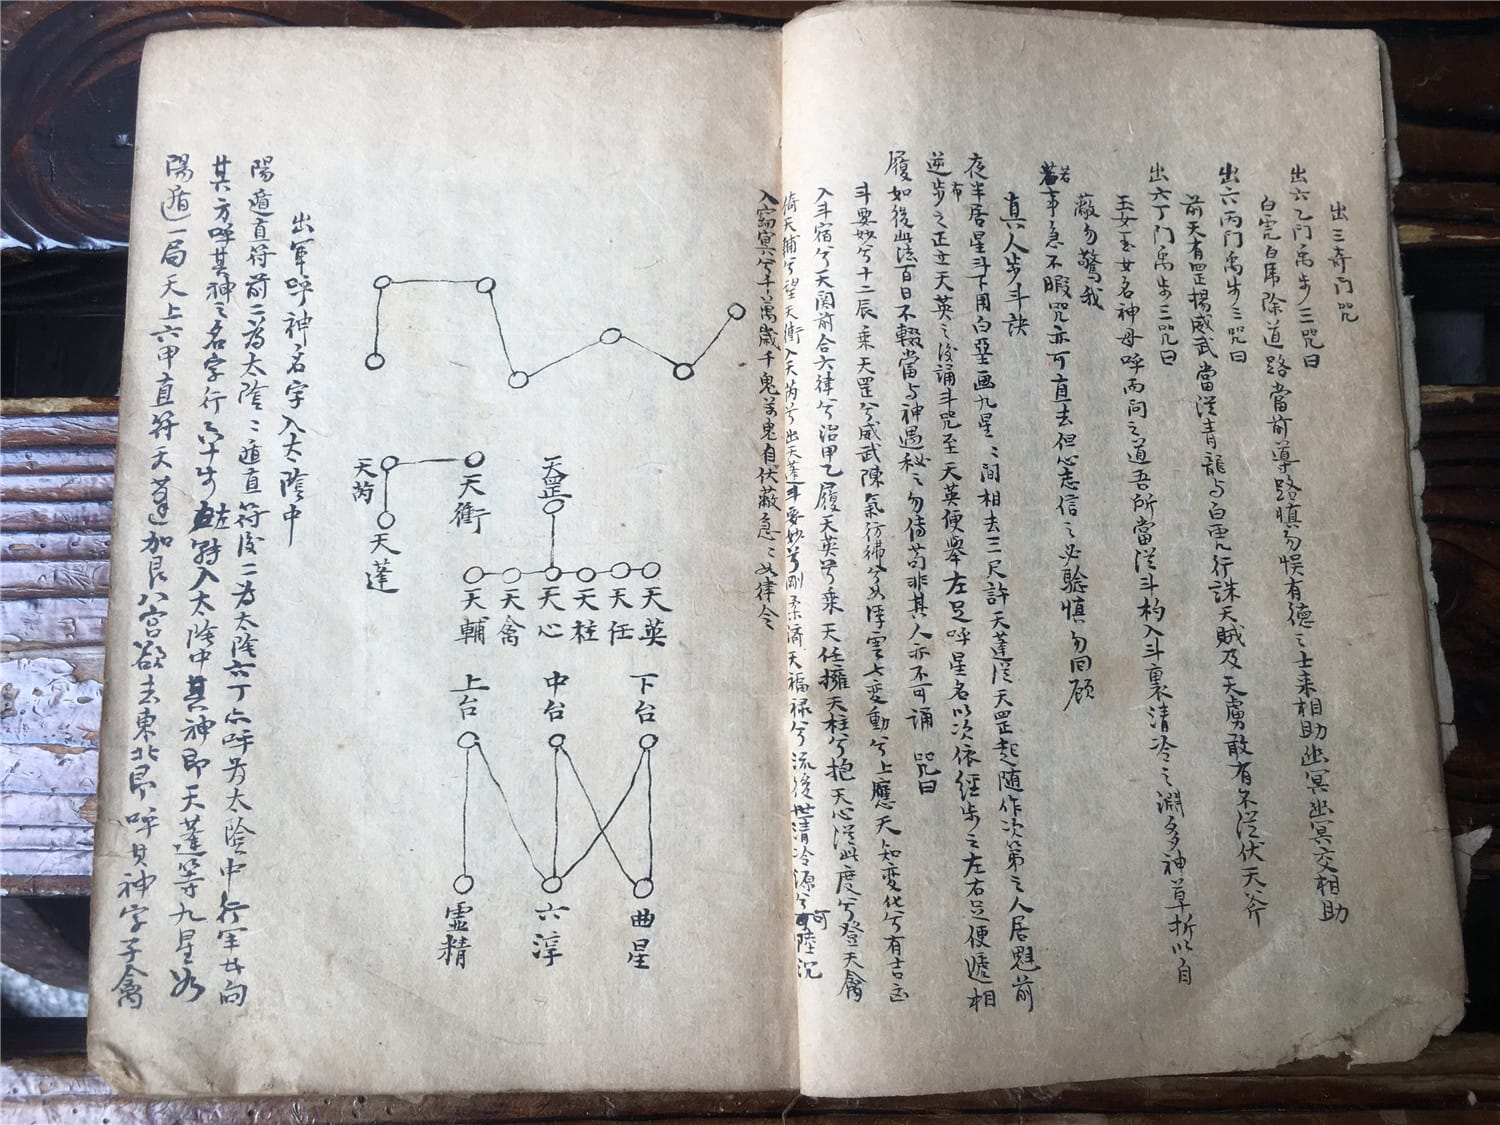 出三奇门咒
出六乙门禹步三咒曰
白虎白馬除道路當前導路慎勿悮有德之士来相助幽冥幽冥交相助
出六丙门禹步三咒曰
前天有罡揚威武當從青龍与白虎行誅天贼及天虜敢有不從伏天斧
出六丁门禹步三咒曰
玉女玉女名神母呼而问之道吾所當從斗杓入斗裏清冷之淵多神草折以自
蔽勿驚我
若事急不暇咒亦可直去但心志信之必驗慎勿回顧
真人步斗訣
夜半居星斗下用白堊画九星〻间相去三尺許天蓬從天罡起随作次第之人居魁前
逆步之正立天英之後誦斗咒至天英便舉左足呼星名以次依經步之左右足便遞相
布
履如後此法百日不輟當与神遇秘之勿傳苟非其人亦不可誦 咒曰
斗要妙兮十二辰乘天罡兮威武陳氣彷彿兮如浮雲七变動兮上應天知变化兮有吉凶
入斗宿兮天関前合六律兮沼甲乙履天英兮乘天任擁天柱兮抱天心從此度兮登天禽
倚天輔兮望天衝入天芮兮出天蓬斗要妙兮剛柔濟天福禄兮流後世清冷源兮可陸沉
入窈冥兮千萬歲千鬼万鬼自伏蔽急〻如律令
天芮
天衝
天蓬
天罡
天輔
天禽
天心
天柱
天任
天英
上台
中台
下台
靈精
六淳
曲星
出軍呼神名字入太陰中
陽遁直符前二為太陰〻遁直符後二為太陰六丁亦呼为太陰中行军廿向
其六方呼其神之名字行六十步左轉入太陰中其神即天蓬等九星如
陽遁一局天上六甲直符天蓬加艮八宫欲去東北即呼其神字子禽